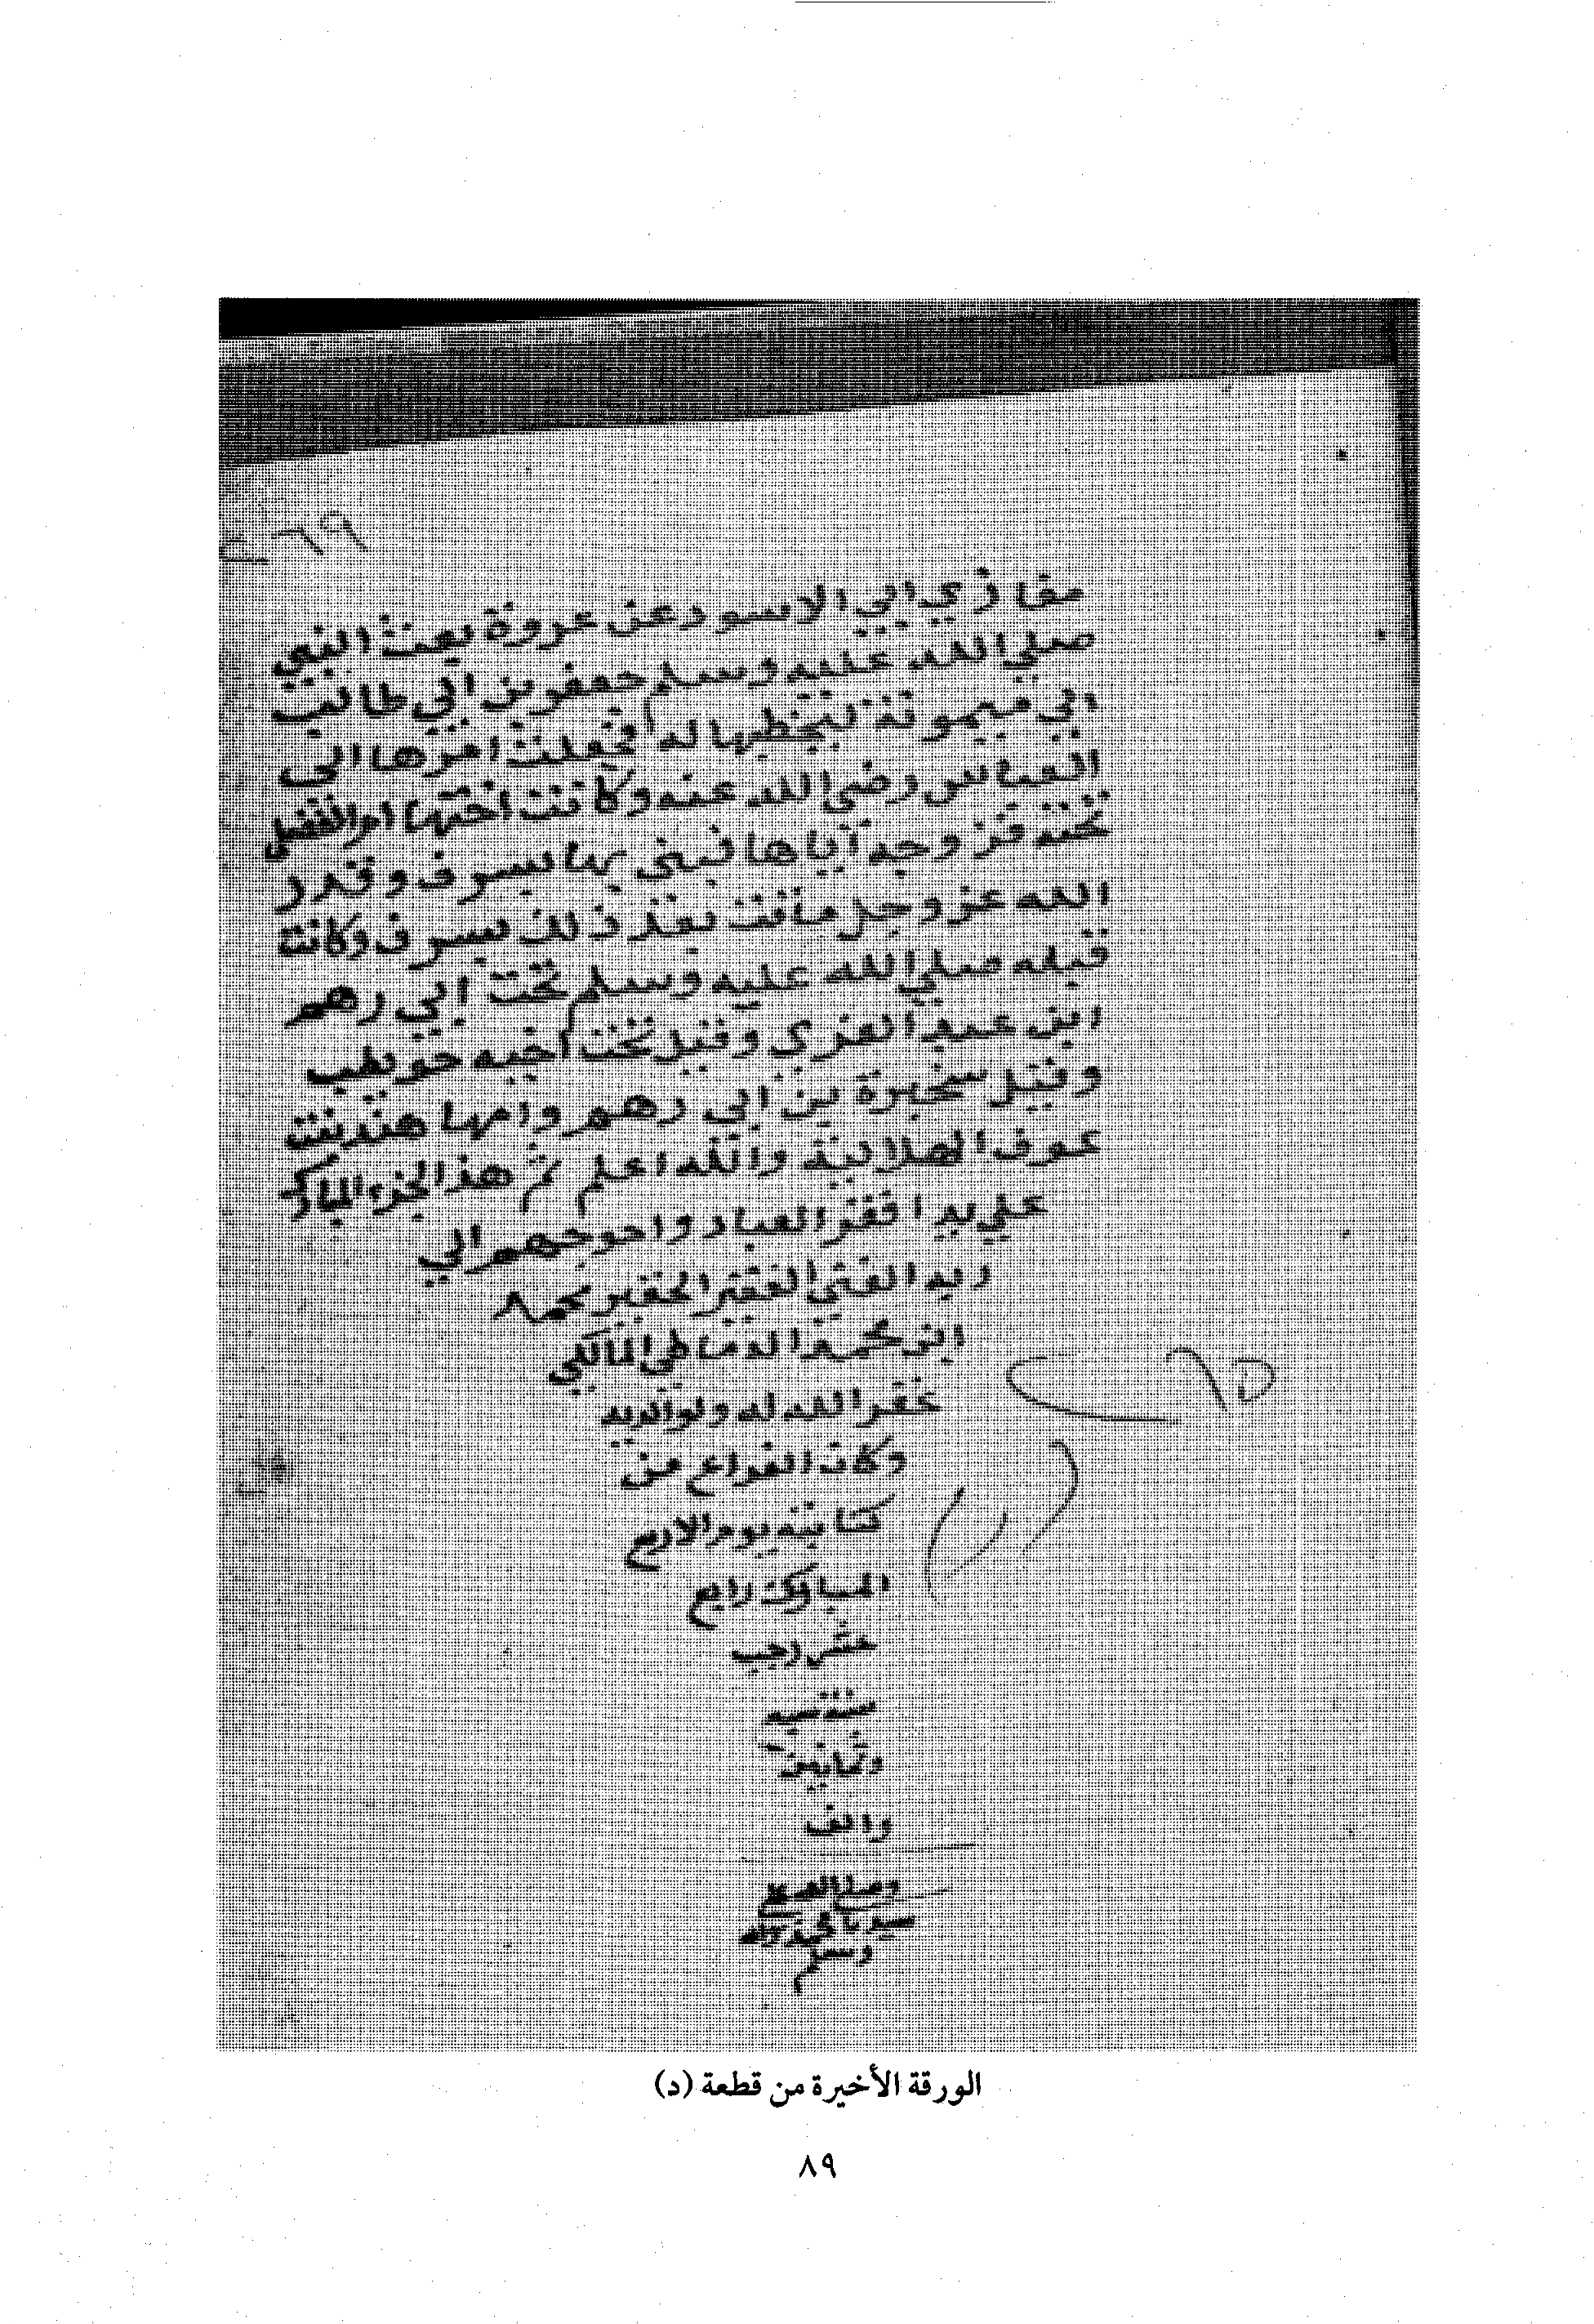 مغازي ابي الاسود عن عروة بعث النبي
صلي الله عليه وسلم جعفر بن ابي طالب
الي ميمونة ليخطبها له فجعلت امرها الى
العباس رضي الله عنه وكانت اختها ام الفضل
تحته فزوجه اياها فبنى بها بسرف وقدر
الله عز وجل ماتت بعد ذلك بسرف وكانت
قبله صلي الله عليه وسلم تحت ابي رهم
ابن عبد العزي وقيل تحت اخيه حويطب
وقيل سخبرة بن ابي رهم وامها هند بنت
عوف الهلالية والله اعلم تم هذا الجزء المبارك
علي يد افقر العباد واحوجهم الي
ربه الغني الفقير الحقير محمد
ابن محمد الدماطي المالكي
غفر الله له ولوالديه
وكان الفراغ من
كتابته يوم الاربع
المبارك رابع
عشر رجب
سنة
وثمانين
والف
وصلى الله على
سيدنا محمد واله
وسلم
الورقة الأخيرة من قطعة (د)
٨٩